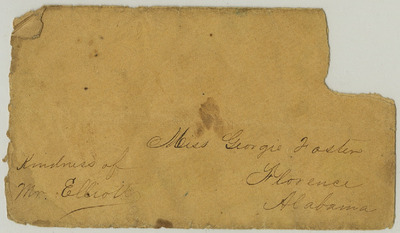 Miss Georgie Foster
Florence
Alabama
Kindness of
Mr. Elliott